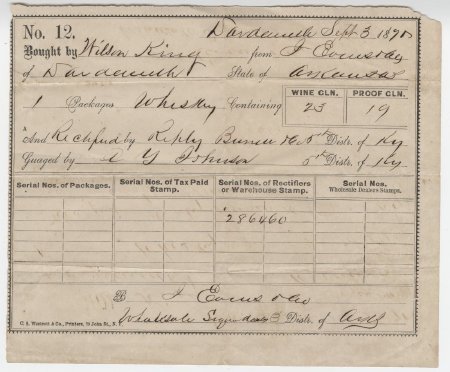 No. 12. Dardanelle Sept 3 1890
Bought by Wilson King from J Evins & Co
of Dardanelle State of Arkansas
WINE GLN. PROOF GLN.
1 Packages Whiskey Containing 23 19
And Rectified by Reply 5th Distr. of Ky
Guaged by C Y Johnson 5th Distr. of Ky
Serial Nos. of Packages. Serial Nos. of Tax Paid Stamp. Serial Nos. of Rectifiers or Warehouse Stamp. Serial Nos. Wholesale Dealers Stamps.
286460
J Evins & Co
Wholesale Liquor dealers 3 Distr. of Ark
C. S. Westcott & Co., Printers, 79 John St., N. Y.